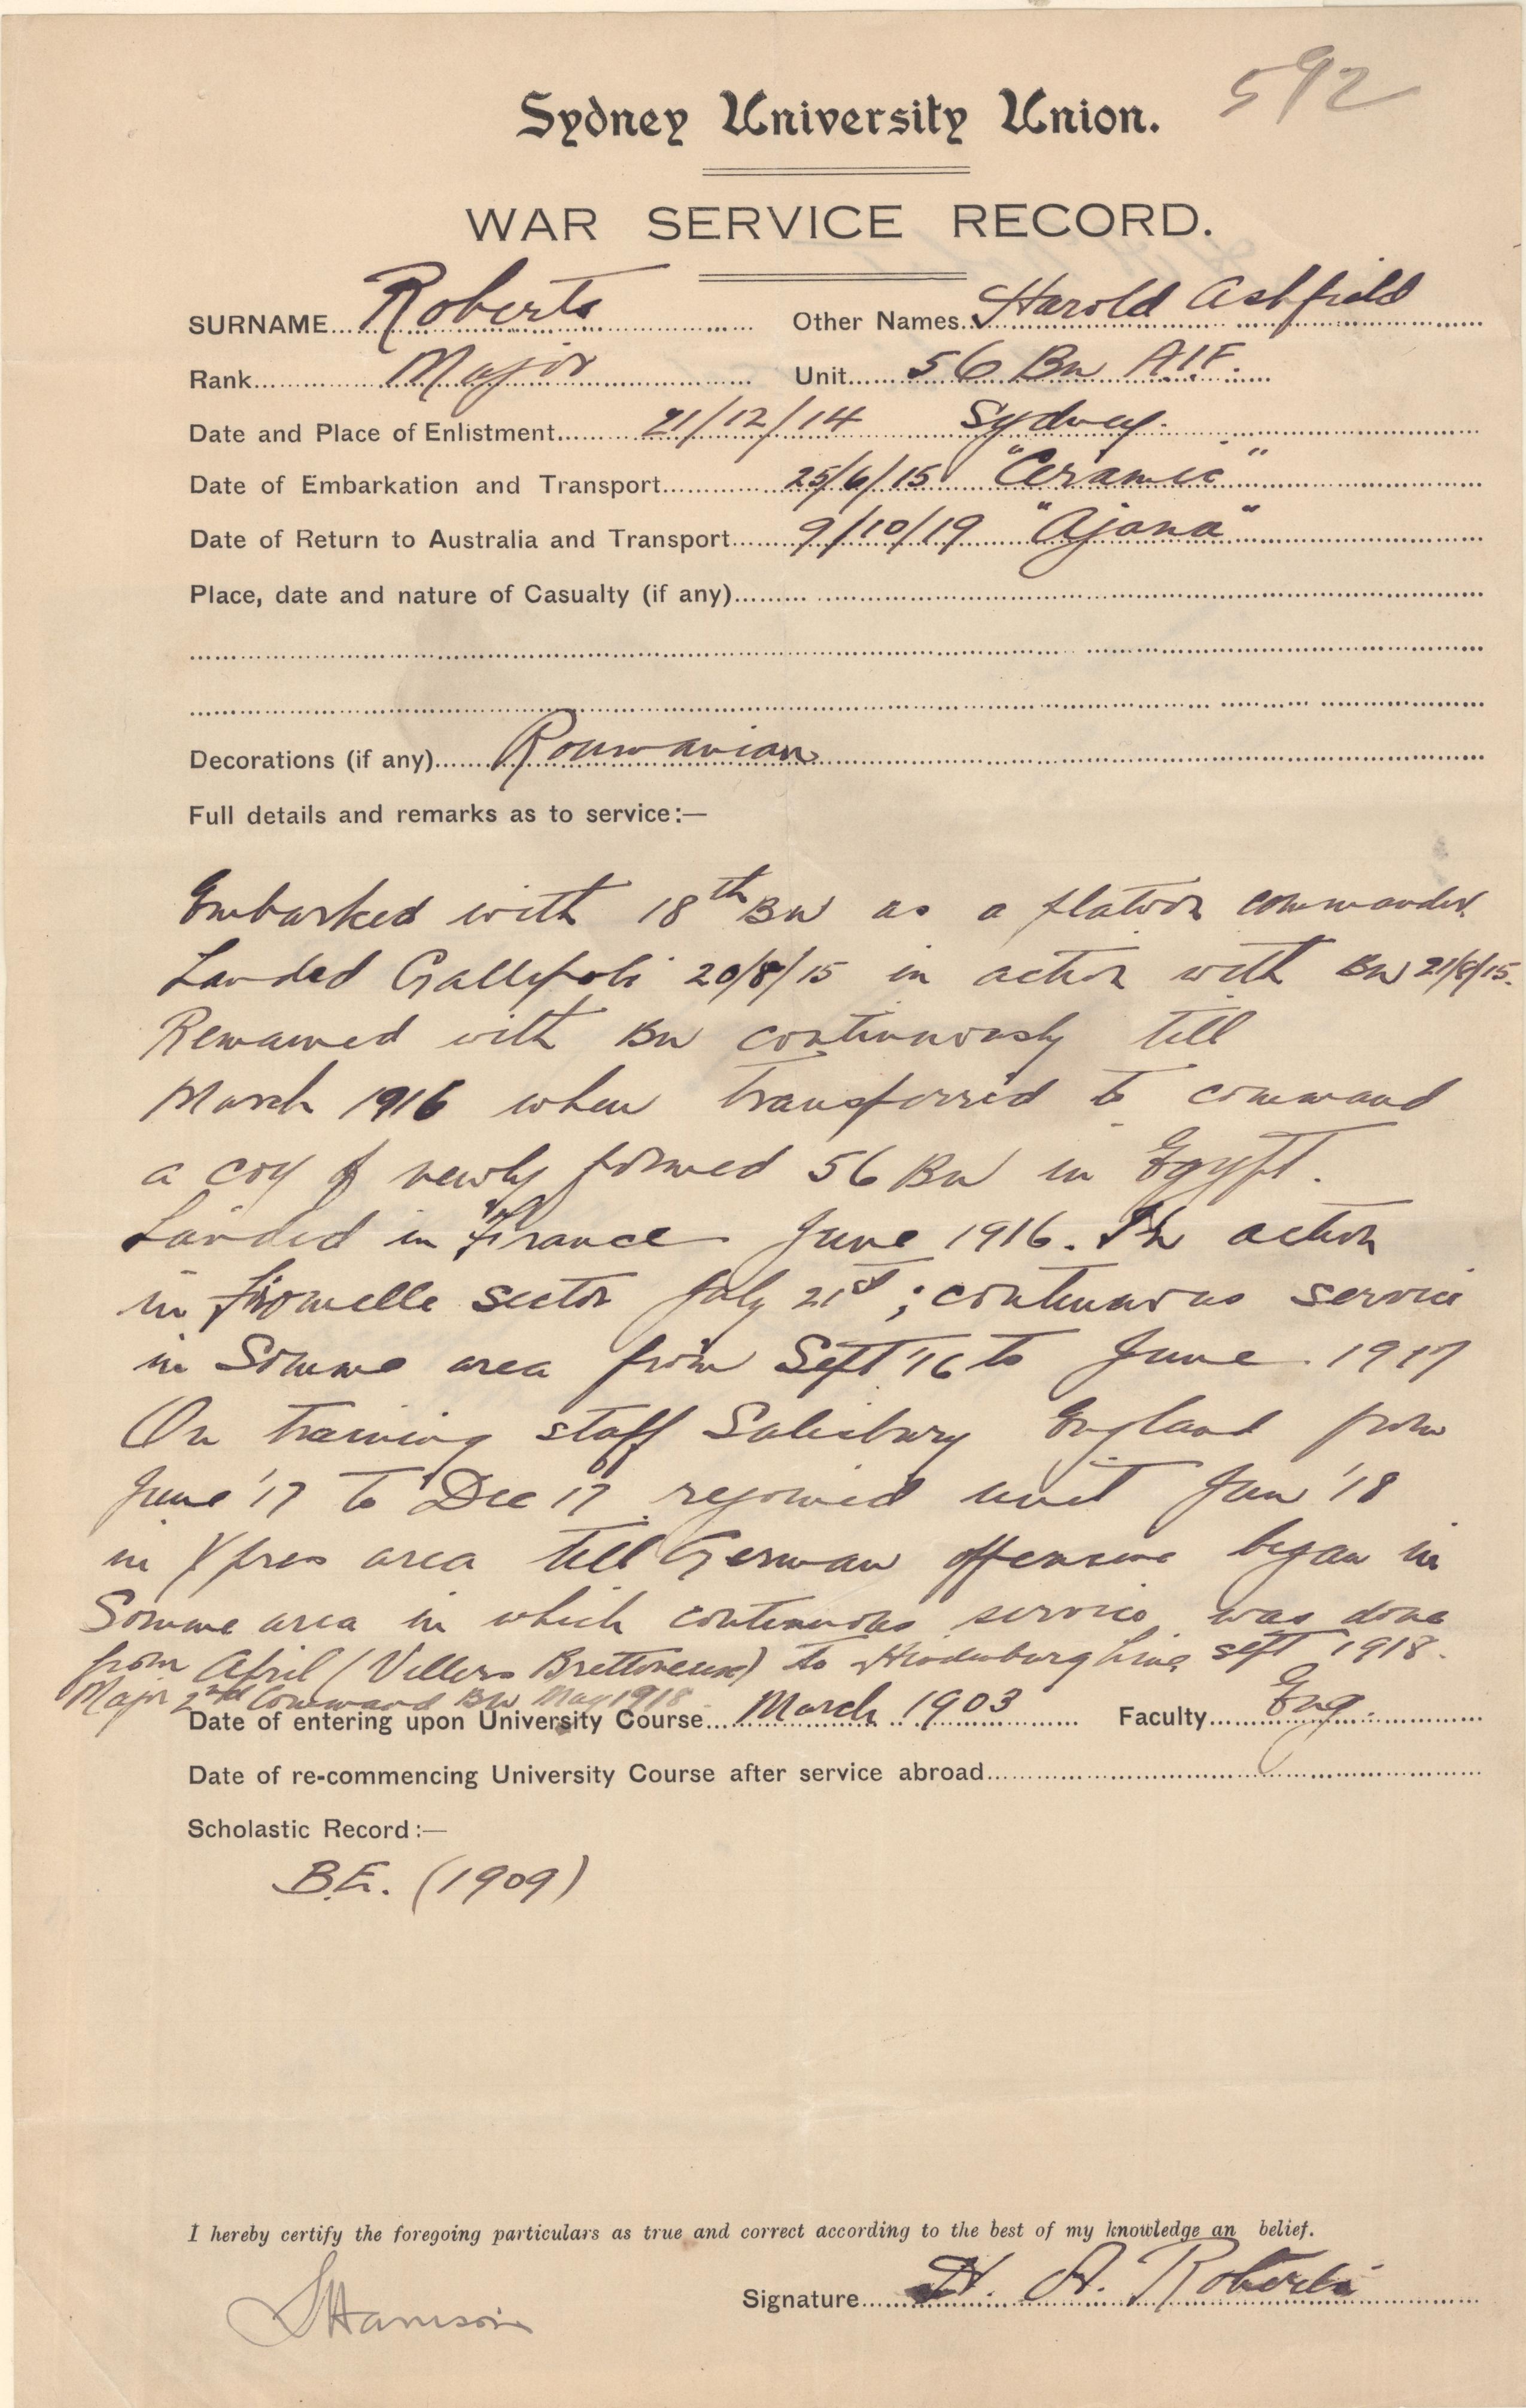 592
Sydney University Union.
WAR SERVICE RECORD.
SURNAME Roberts Other Names Harold Ashfield
Rank Major Unit 56 Bn A.I.F.
Date and Place of Enlistment 21/12/14 Sydney.
Date of Embarkation and Transport 25/6/15 "Ceramic"
Date of Return to Australia and Transport 9/10/19 "Ajana"
Place, date and nature of Casualty (if any)
Decorations (if any) Roumanian
Full details and remarks as to service:—
Embarked with 18th Bn as a platoon commander
Landed Gallipoli 20/8/15 in action with Bn 21/8/15.
Remained with Bn continuously till
March 1916 when transferred to command
a coy of newly formed 56 Bn in Egypt.
Landed in France June 1916. In action
in Fromelle sector July 21st; continuous service
in Somme area from Sept '16 to June 1917
On training staff Salisbury England from
June '17 to Dec 17 rejoined unit Jan '18
in Ypres area till German offensive began in
Somme area in which continuous service was done
from April (Villers Brettoneux) to Hindenburg Line Sept 1918.
Major 2nd Command Bn May 1918
Date of entering upon University Course March 1903 Faculty Eng.
Date of re-commencing University Course after service abroad
Scholastic Record:—
B.E. (1909)
I hereby certify the foregoing particulars as true and correct according to the best of my knowledge an belief.
Signature H. A. Roberts